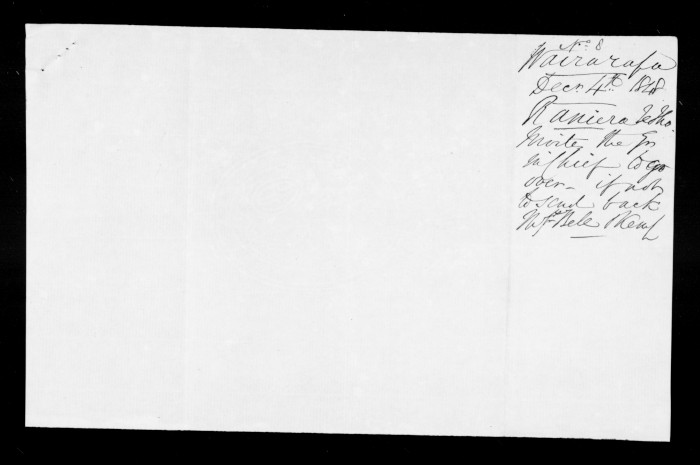 No. 8
Wairarapa
Decr. 4th. 1848
Raniera Te Iho.
Invites the Gr
in Chief to go
over - if not
to send back
Mr. Bell & Kemp